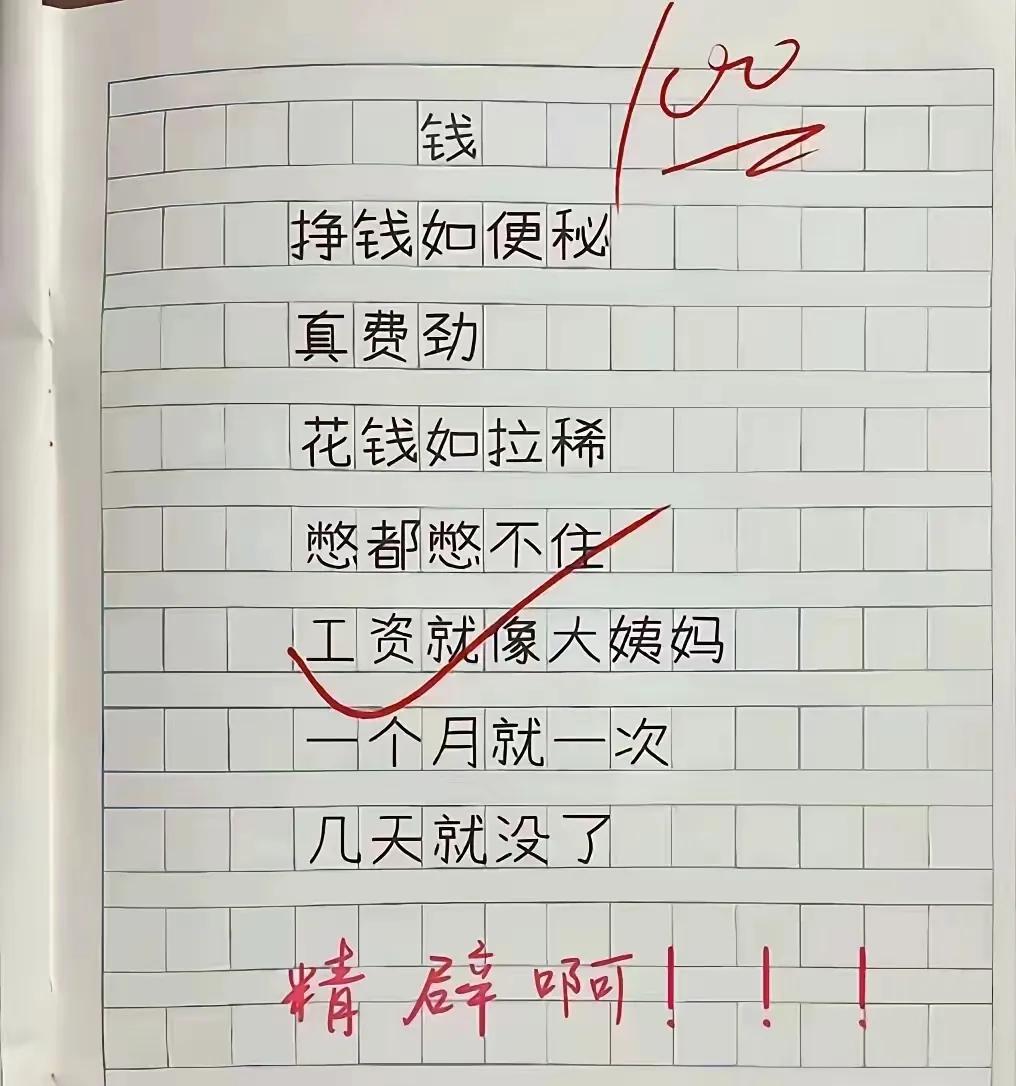 100
钱
挣钱如便秘
真费劲
花钱如拉稀
憋都憋不住
工资就像大姨妈
一个月就一次
几天就没了
精辟啊!!!